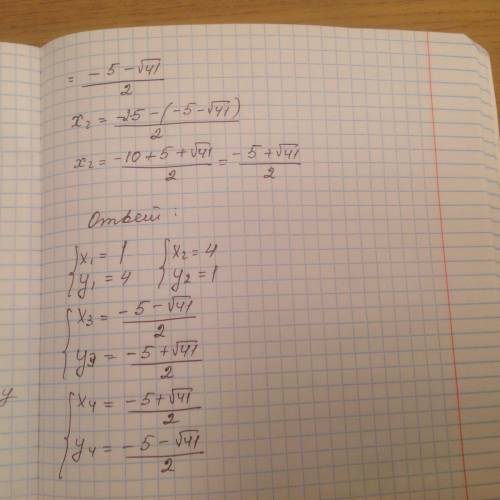 = (-5-√41)/2
x₂ = (-25-(-5-√41))/2
x₂ = (-10+5+√41)/2 = (-5+√41)/2
Ответ:
{x₁ = 1 {x₂ = 4
{y₁ = 4 {y₂ = 1
{x₃ = (-5-√41)/2
{y₃ = (-5+√41)/2
{x₄ = (-5+√41)/2
{y₄ = (-5-√41)/2
y